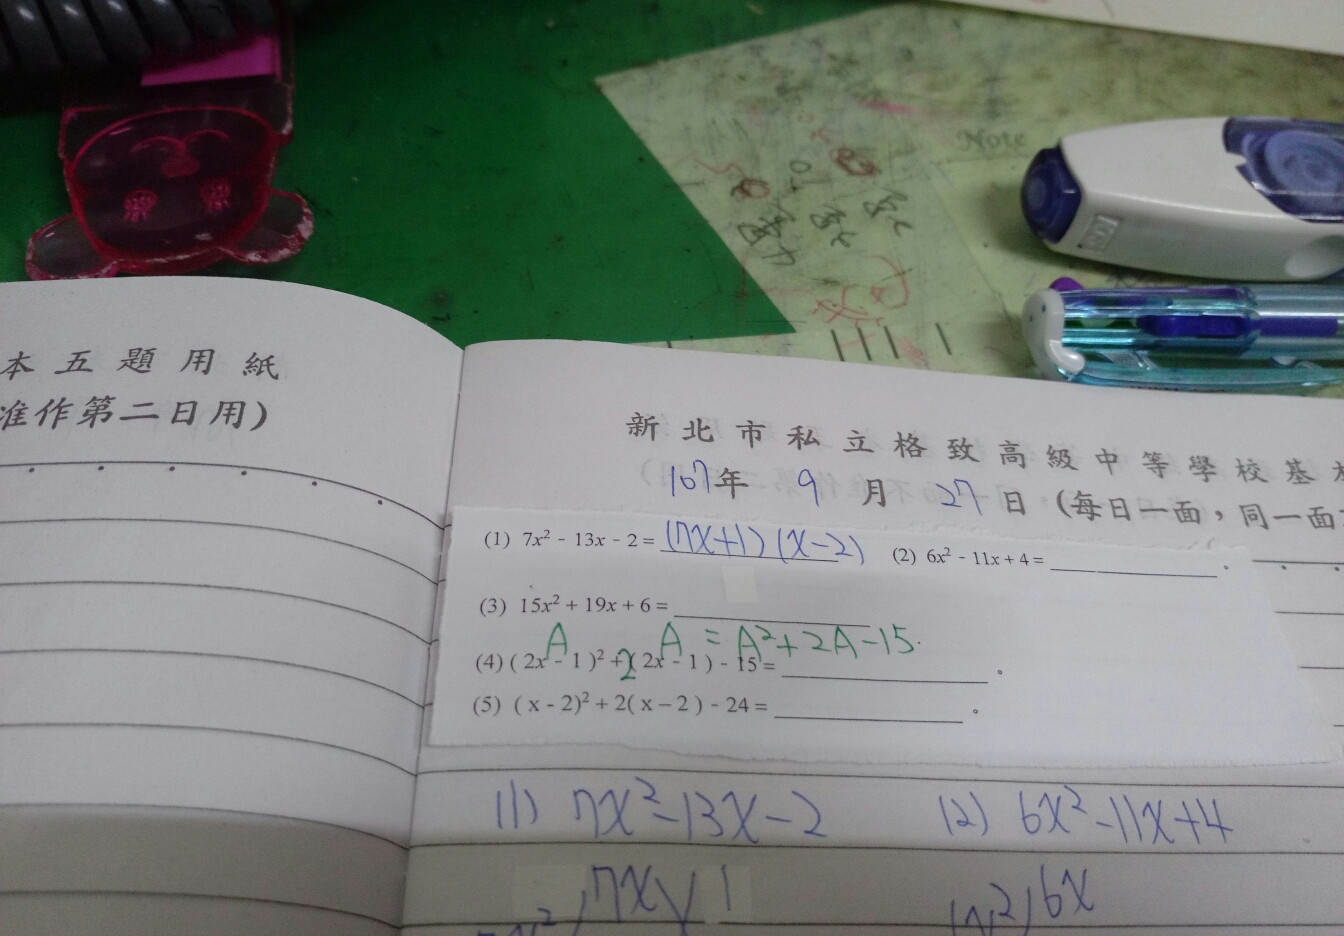 本五題用紙
准作第二日用)
Note
新北市私立格致高級中等學校基
107年 9月 27日 (每日一面，同一面
(1) 7x² - 13x - 2 = (7x+1)(x-2) (2) 6x² - 11x + 4 = ________。
(3) 15x² + 19x + 6 = ________
A A = A²+2A-15
(4) ( 2x - 1 )² + 2( 2x - 1 ) - 15 = ________。
(5) ( x - 2)² + 2( x - 2 ) - 24 = ________。
(1) 7x²-13x-2 (2) 6x²-11x+4
7x 1 6x